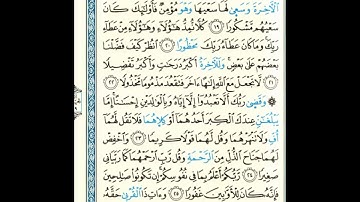 ٱلْأَخِرَةَ وَسَعَىٰ لَهَا سَعْيَهَا وَهُوَ مُؤْمِنٌ فَأُو۟لَٰٓئِكَ كَانَ
سَعْيُهُم مَّشْكُورًا ١٩ كُلًّا نُّمِدُّ هَٰٓؤُلَآءِ وَهَٰٓؤُلَآءِ مِنْ عَطَآءِ
رَبِّكَ وَمَا كَانَ عَطَآءُ رَبِّكَ مَحْظُورًا ٢٠ ٱنظُرْ كَيْفَ فَضَّلْنَا
بَعْضَهُمْ عَلَىٰ بَعْضٍ وَلَلْأَخِرَةُ أَكْبَرُ دَرَجَٰتٍ وَأَكْبَرُ تَفْضِيلًا
٢١ لَّا تَجْعَلْ مَعَ ٱللَّهِ إِلَٰهًا ءَاخَرَ فَتَقْعُدَ مَذْمُومًا مَّخْذُولًا ٢٢
۞ وَقَضَىٰ رَبُّكَ أَلَّا تَعْبُدُوٓا۟ إِلَّآ إِيَّاهُ وَبِٱلْوَٰلِدَيْنِ إِحْسَٰنًا إِمَّا
يَبْلُغَنَّ عِندَكَ ٱلْكِبَرَ أَحَدُهُمَآ أَوْ كِلَاهُمَا فَلَا تَقُل لَّهُمَآ
أُفٍّ وَلَا تَنْهَرْهُمَا وَقُل لَّهُمَا قَوْلًا كَرِيمًا ٢٣ وَٱخْفِضْ
لَهُمَا جَنَاحَ ٱلذُّلِّ مِنَ ٱلرَّحْمَةِ وَقُل رَّبِّ ٱرْحَمْهُمَا كَمَا رَبَّيَانِى
صَغِيرًا ٢٤ رَّبُّكُمْ أَعْلَمُ بِمَا فِى نُفُوسِكُمْ إِن تَكُونُوا۟ صَٰلِحِينَ
فَإِنَّهُۥ كَانَ لِلْأَوَّٰبِينَ غَفُورًا ٢٥ وَءَاتِ ذَا ٱلْقُرْبَىٰ حَقَّهُۥ